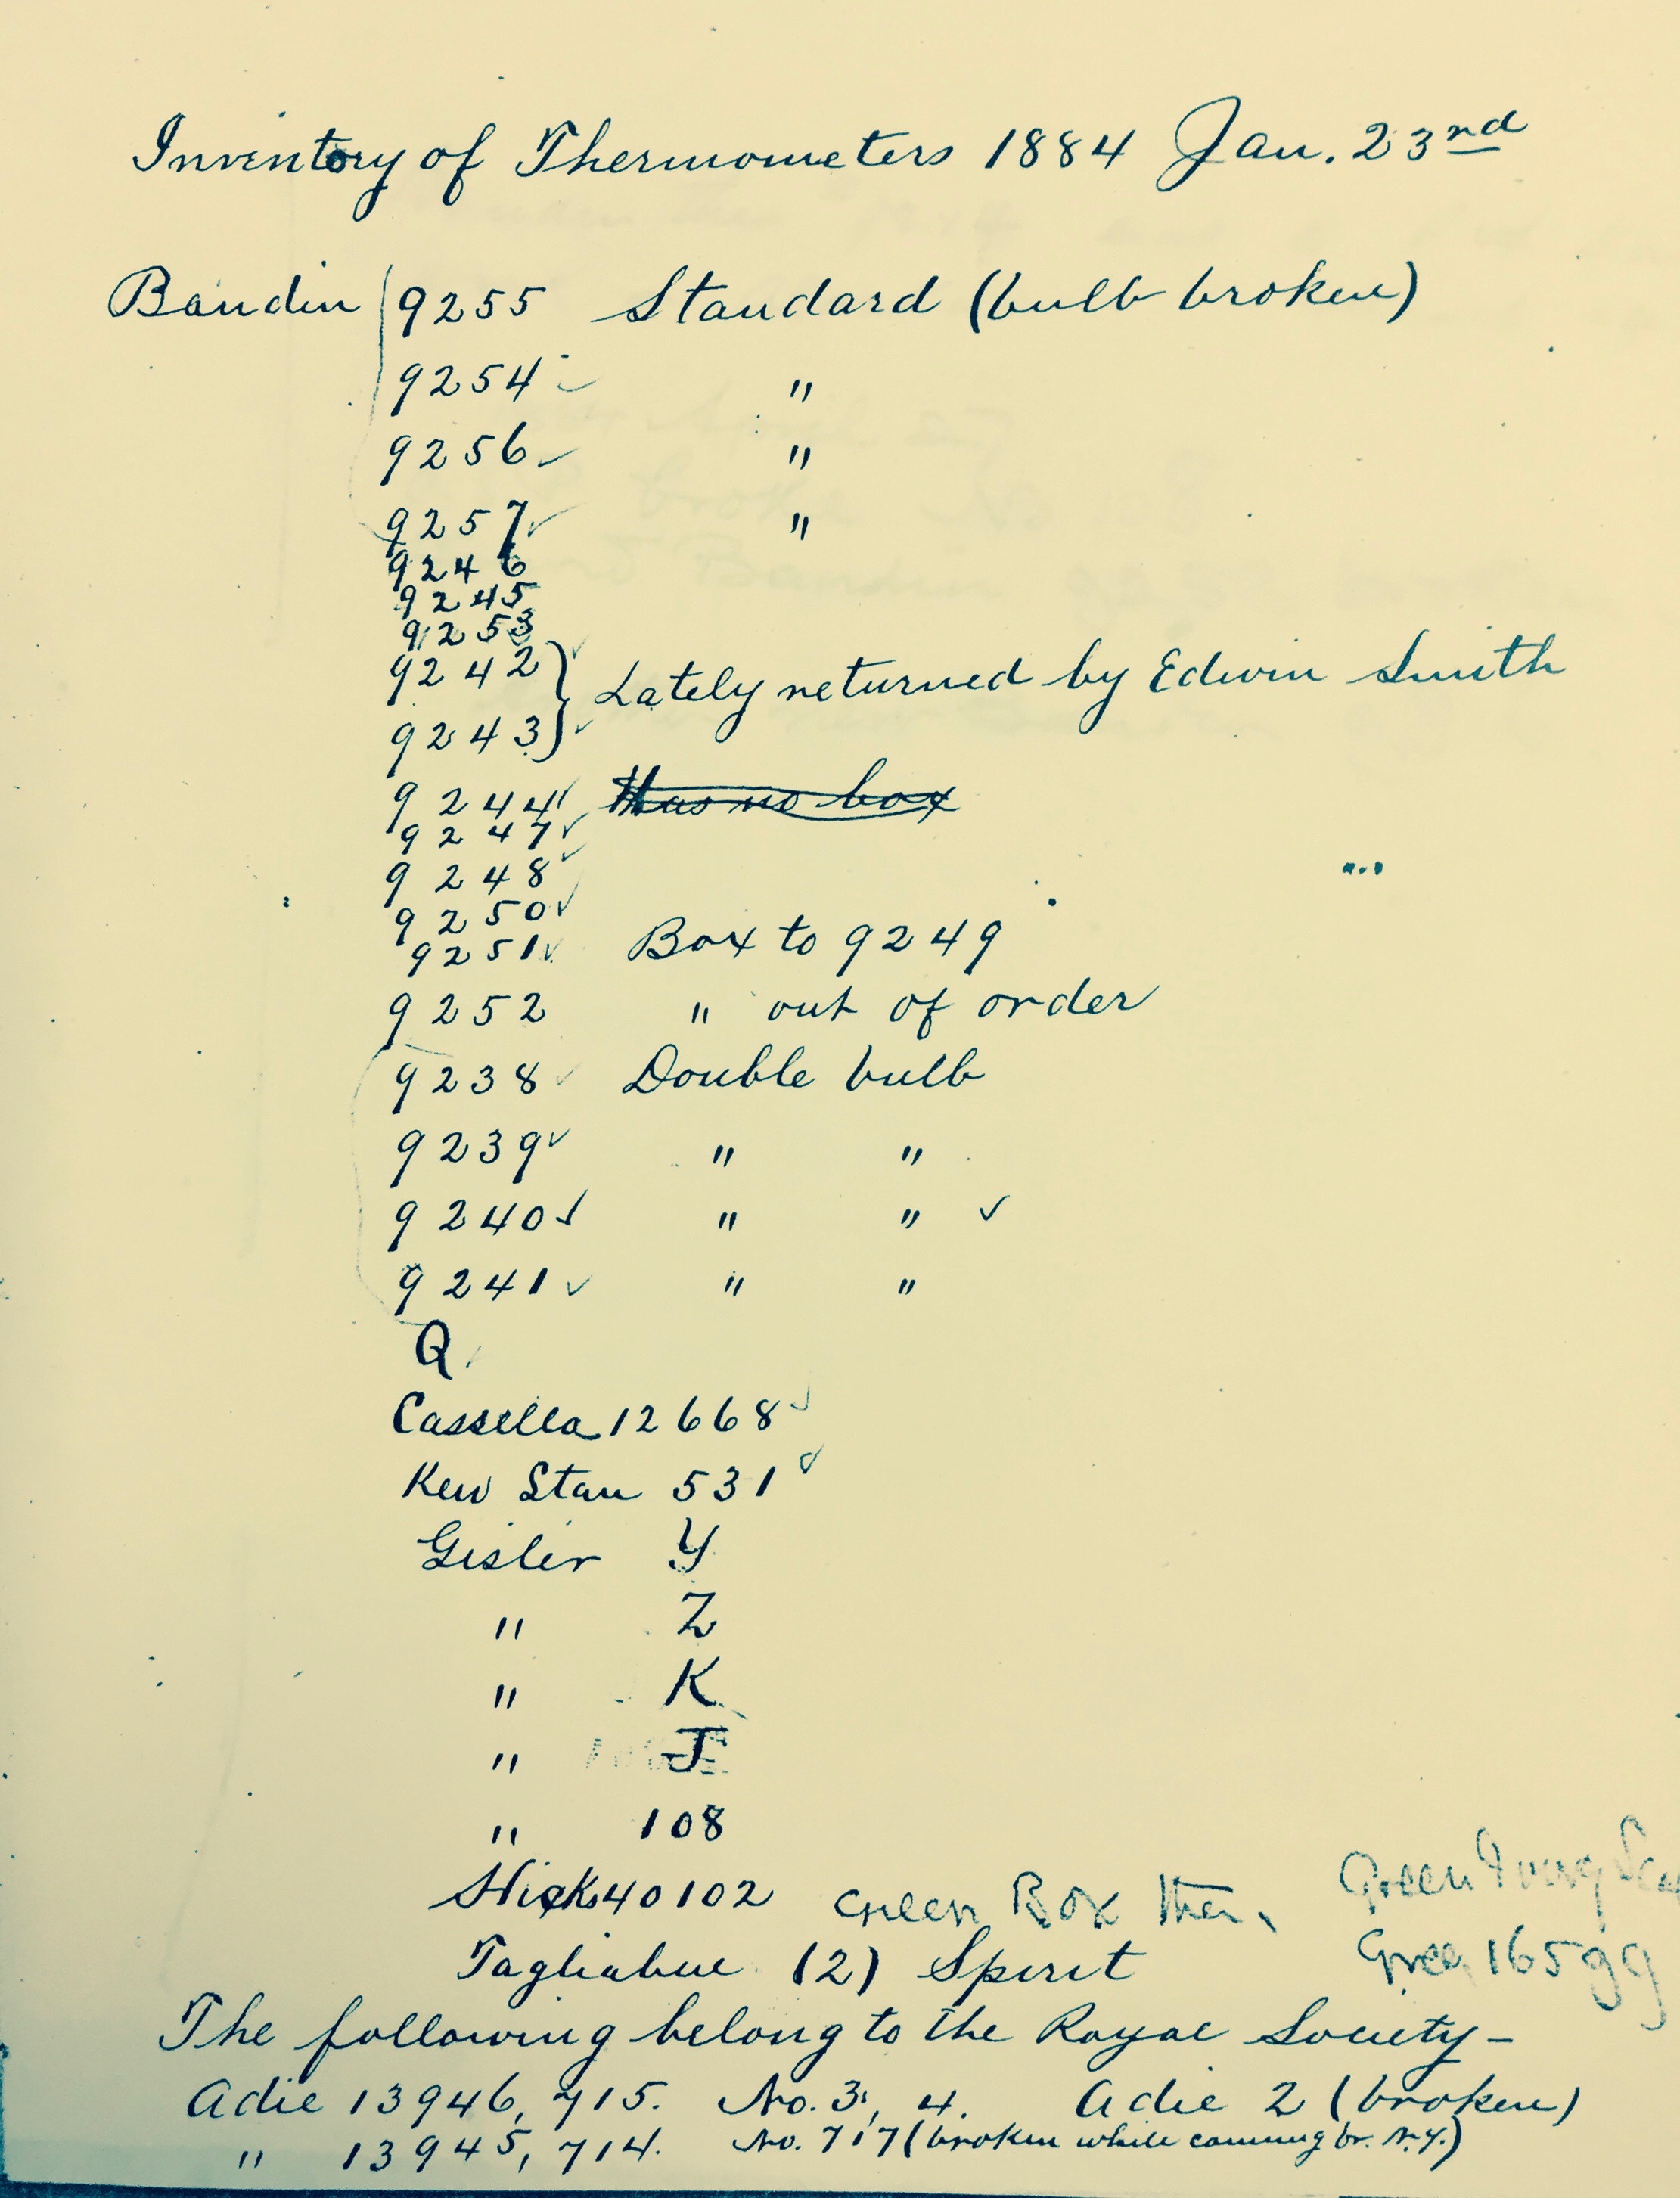 Inventory of Thermometers 1884 Jan. 23rd
Baudin 9255 Standard (bulb broken)
9254 ✓ "
9256 ✓ "
9257 ✓ "
9246
9245
9253
9242 } ✓ Lately returned by Edwin Smith
9243 } ✓
9244 ✓ Has no box
9247 ✓
9248 ✓
9250 ✓
9251 ✓ Box to 9249
9252 " out of order
9238 ✓ Double bulb
9239 ✓ " "
9240 ✓ " " ✓
9241 ✓ " "
Q
Cassella 12668 ✓
Kew Stan 531 ✓
Gisler Y
" Z
" K
" J
" 108
Hicks 40102 Green Box ther. Green
Tagliabue (2) Spirit Green 16599
The following belong to the Royal Society –
Adie 13946, 715. No. 3, 4. Adie 2 (broken)
" 13945, 714. No. 717 (broken while coming fr. N.Y.)